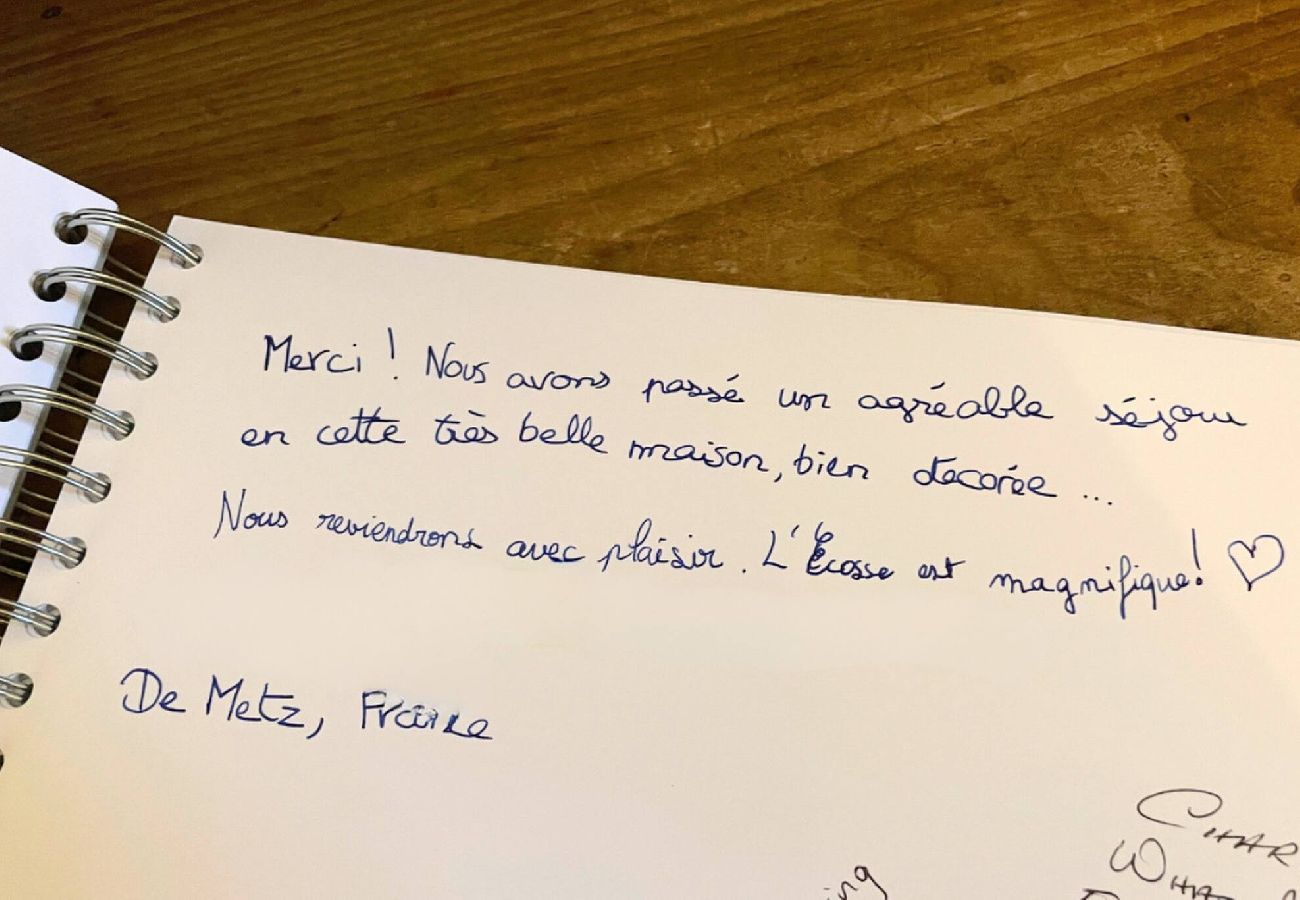 Merci ! Nous avons passé un agréable séjour
en cette très belle maison, bien décorée ...
Nous reviendrons avec plaisir. L'Écosse est magnifique! ♡
De Metz, France
CHAR
WHA
ing